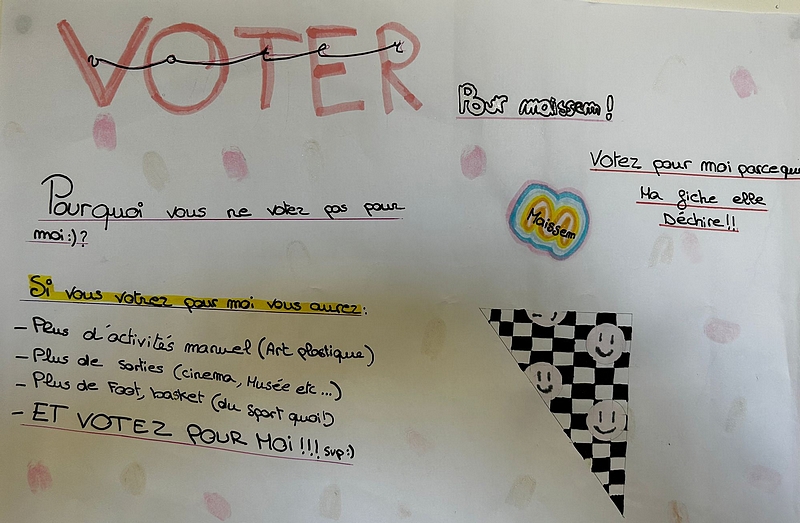 VOTER
voter
Pour maissem !
Votez pour moi parceque
Ma fiche elle
Déchire !!
Maissem
Pourquoi vous ne votez pas pour
moi :) ?
Si vous votrez pour moi vous aurez :
- Plus d'activités manuel (Art plastique)
- Plus de sorties (cinema, Musée etc...)
- Plus de Foot, basket (du sport quoi!)
- ET VOTEZ POUR MOI !!! svp :)